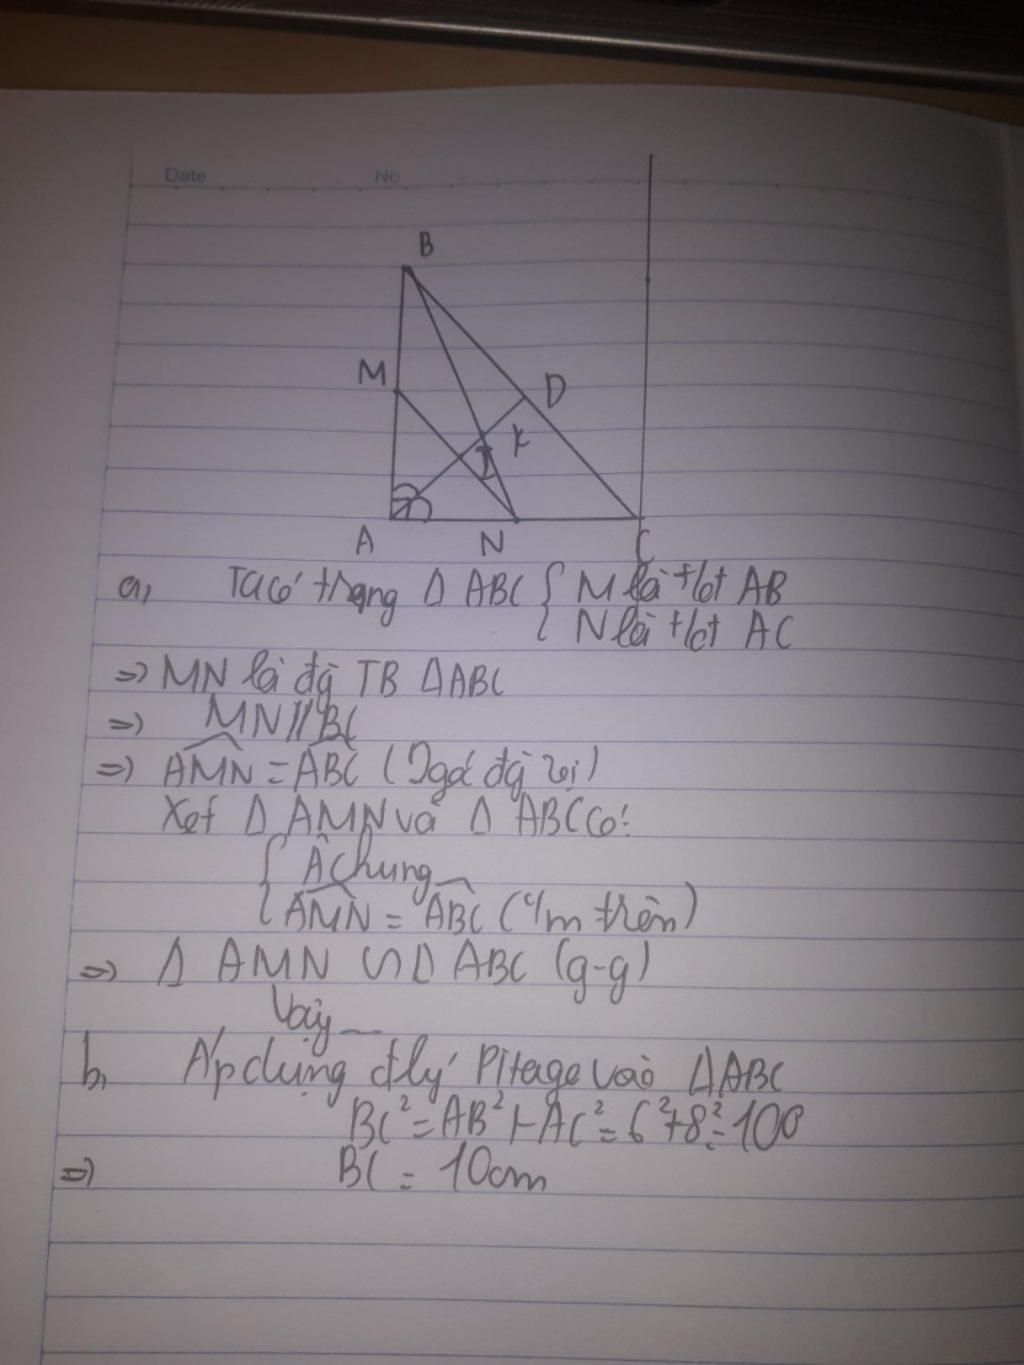 Date No
B
M
D
K
I
A N C
a, Ta có trong Δ ABC { M là tđ AB
N là tđ AC
=> MN là đg TB ΔABC
=> MN // BC
=> AMN = ABC (2 góc đg vị)
Xét Δ AMN và Δ ABC có:
{ Â chung
AMN = ABC (c/m trên)
=> Δ AMN ∽ Δ ABC (g-g)
Vậy __
b, Áp dụng đlý Pitago vào ΔABC
BC² = AB² + AC² = 6² + 8² = 100
=> BC = 10cm